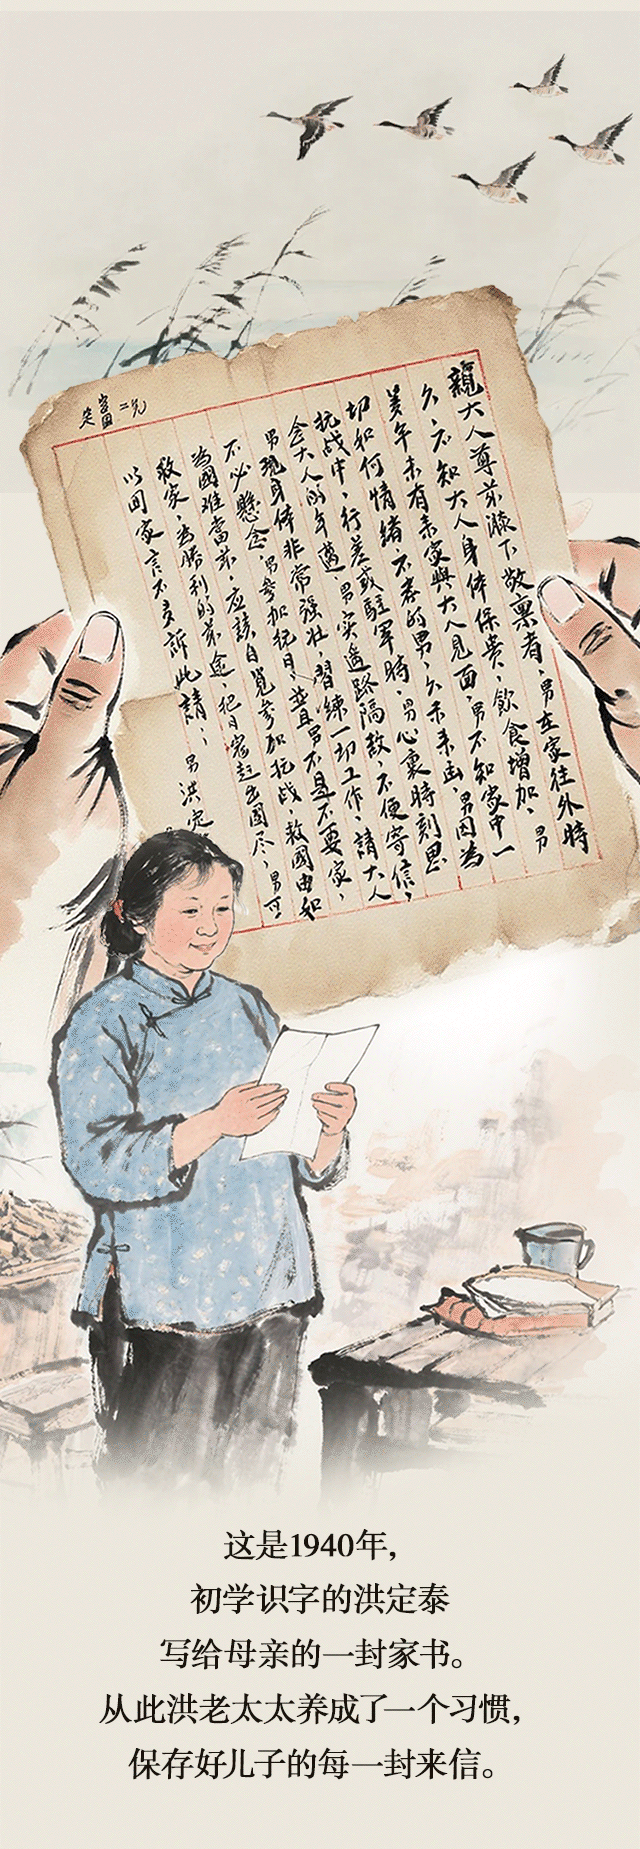 親大人尊前膝下敬禀者，男在家往外時
久，不知大人身体保贵，飲食增加，男
羙年未有来家與大人見面，男不知家中一
切如何情緒，不孝的男，久未来函，男因為
抗战中，行差或駐軍時，男心裏時刻思
念大人的年邁，男实道路隔故，不便寄信，
男現身体非常强壮，習練一切工作，請大人
不必懸念，男参加抗日，並且男不是不要家，
為國难當前，应該自覚参加抗战，救國由如
救家，為勝利的前途，把日寇赶出國尽，男可
以回家言不多訴此請：男洪定
这是1940年，
初学识字的洪定泰
写给母亲的一封家书。
从此洪老太太养成了一个习惯，
保存好儿子的每一封来信。